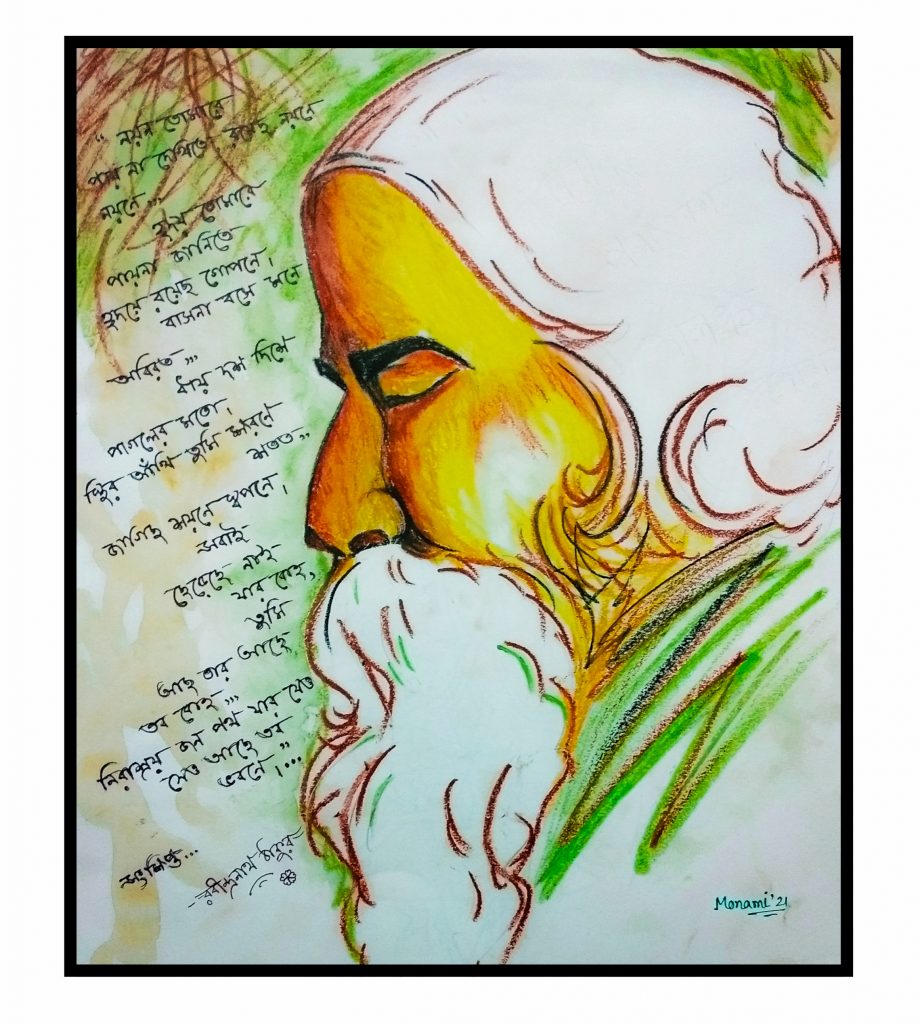 “ নয়ন তোমারে
পায় না দেখিতে রয়েছ নয়নে
নয়নে...
হৃদয় তোমারে
পায়না জানিতে
হৃদয়ে রয়েছ গোপনে।
বাসনা বসে মনে
অবিরত,,,
ধায় দশ দিশে
পাগলের মতো।
স্থির আঁখি তুমি
শতত”
জাগিছ শয়নে স্বপনে।
সবাই
ছেড়েছে নাই
যার কেহ,
তুমি
আছ তার আছে
তব কেহ,,,
নিরাশ্রয় জন পথ যার যেও
সেও আছে তব
ভবনে।...”
সংক্ষিপ্ত...
-রবীন্দ্রনাথ ঠাকুর
Monami'21